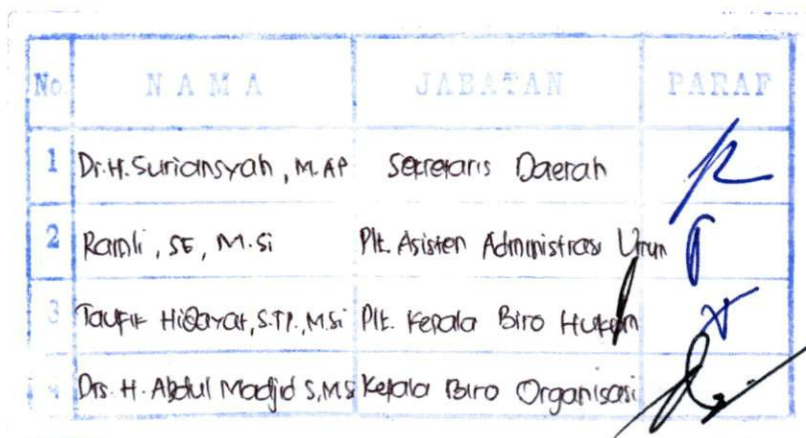 No NAMA JABATAN PARAF
1 Dr. H. Suriansyah, M.AP Sekretaris Daerah
2 Ramli, SE, M.Si Plt. Asisten Administrasi Umum
3 Taufik Hidayat, S.TP., M.Si Plt. Kepala Biro Hukum
4 Drs. H. Abdul Madjid S, M.S Kepala Biro Organisasi